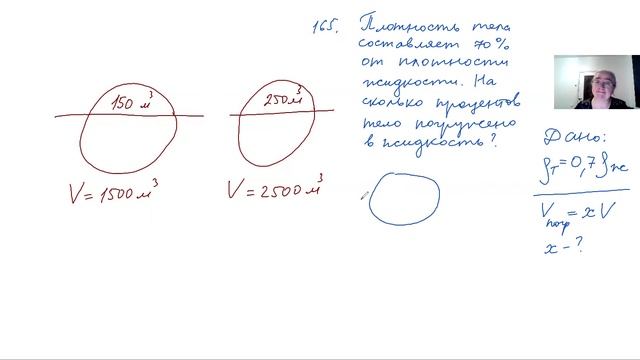 165. Плотность тела
составляет 70%
от плотности
жидкости. На
сколько процентов
тело погружено
в жидкость?
150 м³
V = 1500 м³
250 м³
V = 2500 м³
Дано:
ρт = 0,7 ρж
Vпогр = x V
x - ?